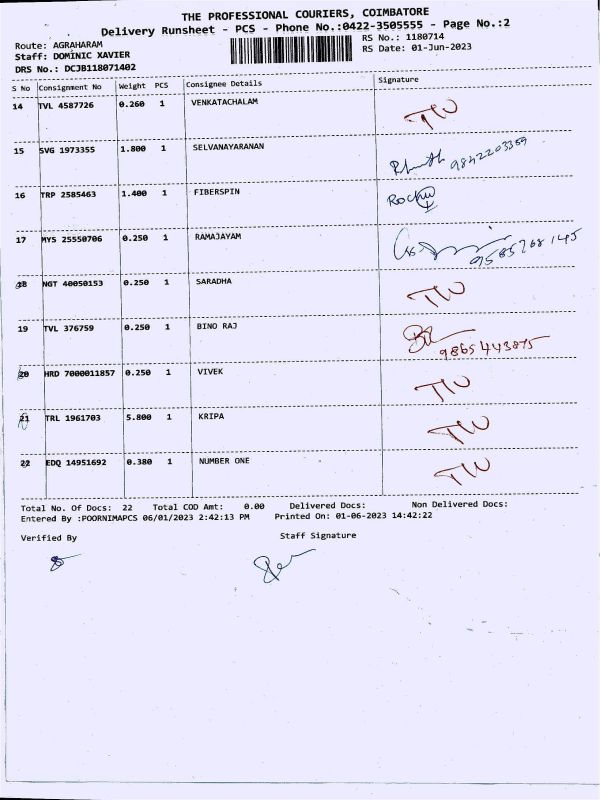 THE PROFESSIONAL COURIERS, COIMBATORE
Delivery Runsheet - PCS - Phone No.:0422-3505555 - Page No.:2
Route: AGRAHARAM
RS No.: 1180714
Staff: DOMINIC XAVIER
RS Date: 01-Jun-2023
DRS No.: DCJB118071402
S No Consignment No Weight PCS Consignee Details Signature
14 TVL 4587726 0.260 1 VENKATACHALAM
15 SVG 1973355 1.800 1 SELVANAYARANAN 9842203369
16 TRP 2585463 1.400 1 FIBERSPIN
17 MYS 25550706 0.250 1 RAMAJAYAM 9585768145
18 NGT 40050153 0.250 1 SARADHA
19 TVL 376759 0.250 1 BINO RAJ 9865443875
20 HRD 7000011857 0.250 1 VIVEK
21 TRL 1961703 5.800 1 KRIPA
22 EDQ 14951692 0.380 1 NUMBER ONE
Total No. Of Docs: 22 Total COD Amt: 0.00 Delivered Docs: Non Delivered Docs:
Entered By :POORNIMAPCS 06/01/2023 2:42:13 PM Printed On: 01-06-2023 14:42:22
Verified By Staff Signature